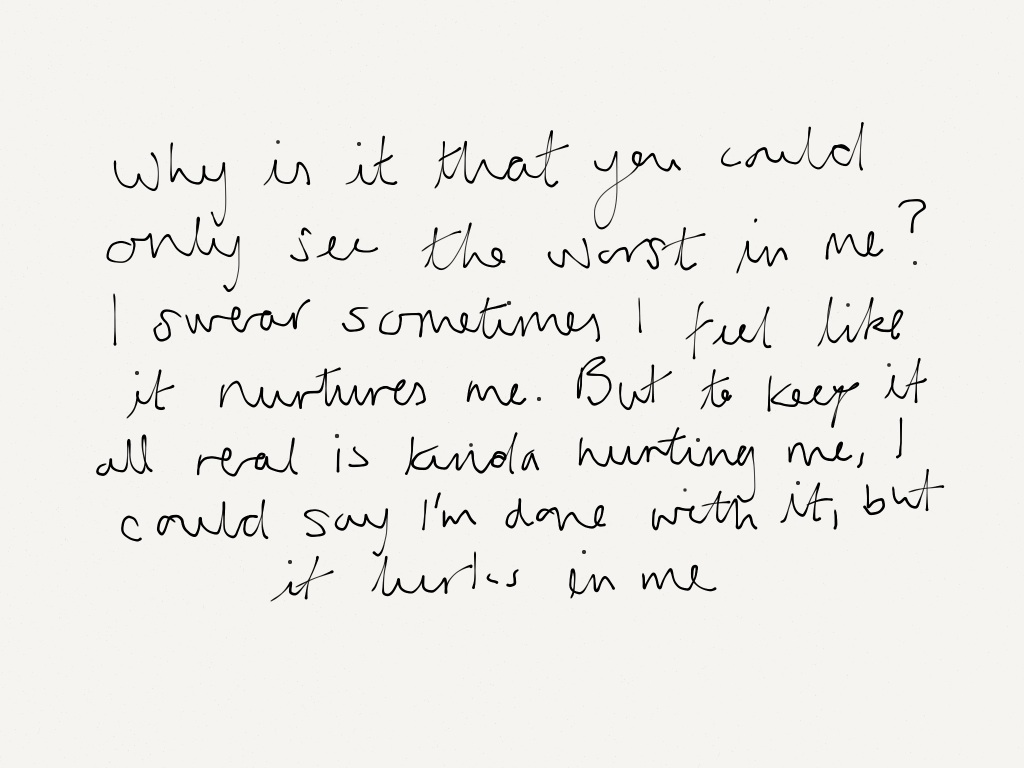 Why is it that you could
only see the worst in me?
I swear sometimes I feel like
it nurtures me. But to keep it
all real is kinda hurting me, I
could say I'm done with it, but
it lurks in me